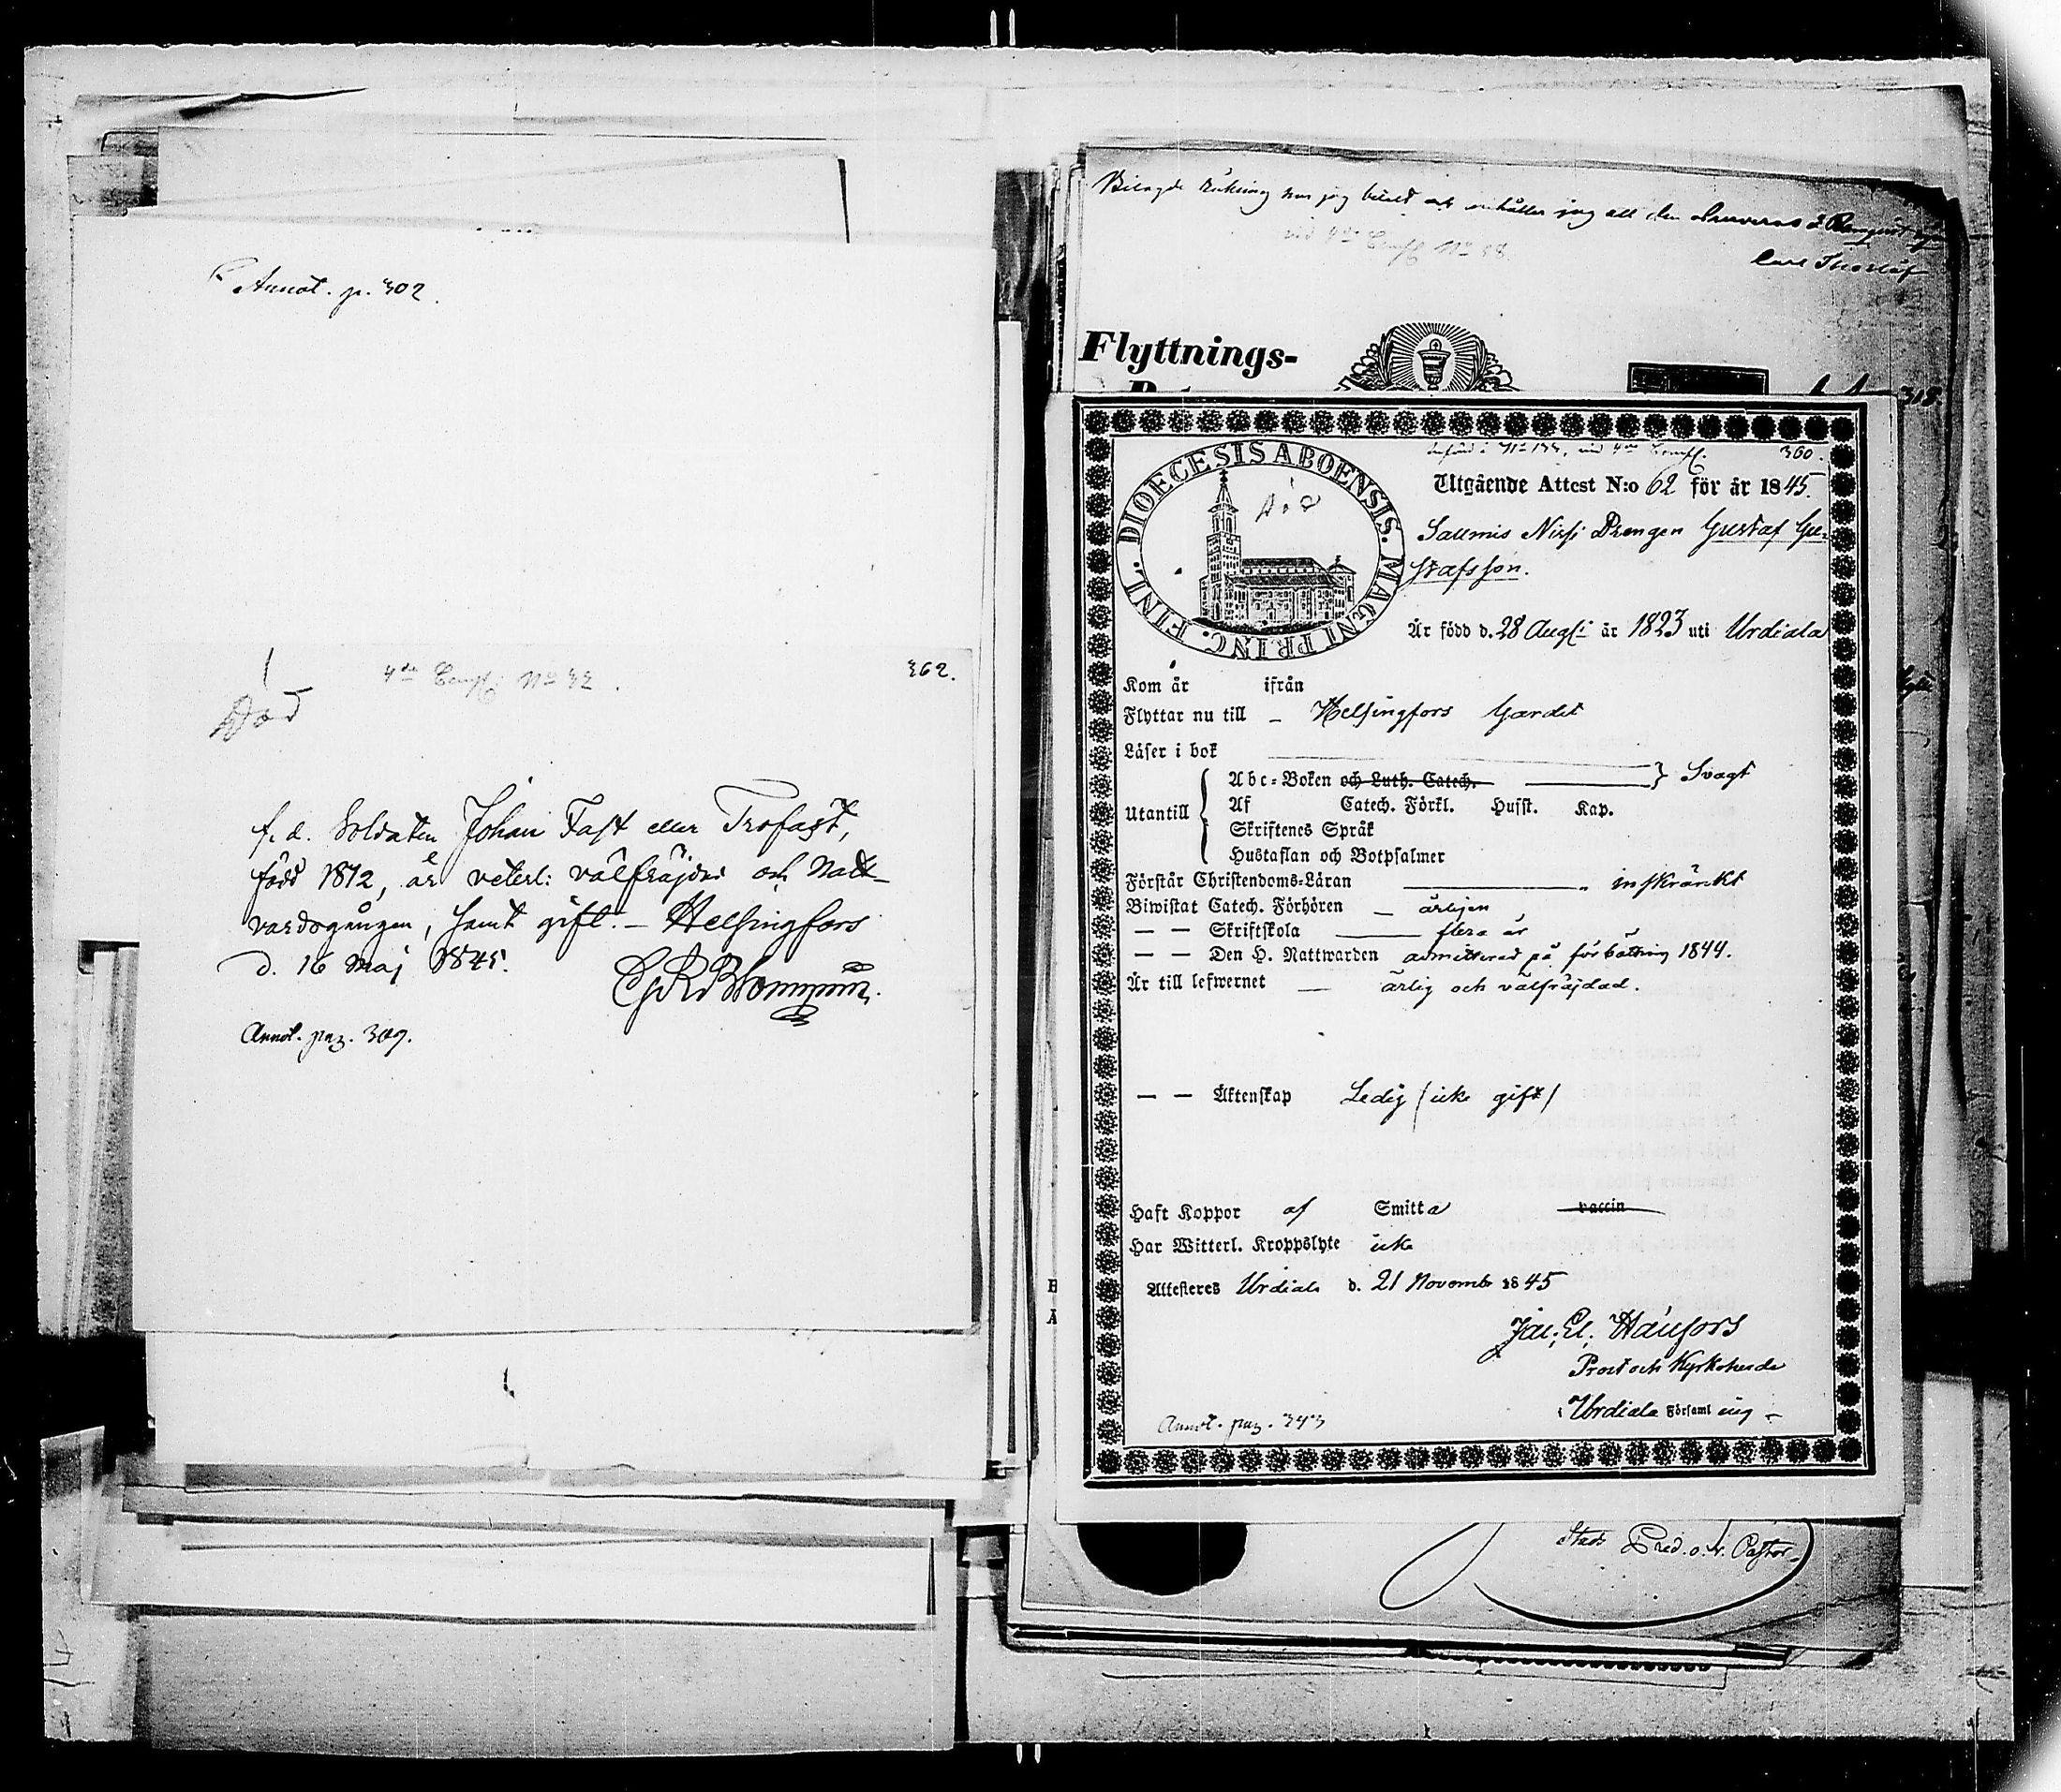 Annot. p. 302.
4de Comp: No 32.
362.
Död
f. d. Soldaten Johan Fast eller Trofast,
född 1812, är veterl: välfräjdad och Natt-
vardsgången, samt gift. - Helsingfors
d. 16 Maj 1845.
Annot. pag. 309.
har jag och anhåller jag att den
vid 4de Comp No 88.
Carl
Flyttnings-
318.
DIOECESIS ABOENSIS. MAGNI PRINC. FINL.
Död
No vid 4de Comp. 360.
Utgående Attest N:o 62 för år 1845.
Saumis Nissi Drengen Gustaf Gu-
stafsson.
Är född d. 28 Aug. år 1823 uti Urdiala
Kom år ifrån
Flyttar nu till – Helsingfors Gardet
Läser i bok
Abc-Boken och Luth. Catech. } Svagt
Utantill { Af Catech. Förkl. Husst. Kap.
Skriftenes Språk
Hustaflan och Botpsalmer
Förstår Christendoms-Läran inskränkt
Biwistat Catech. Förhören – årligen
— — Skriftskola flera år
— — Den H. Nattwarden admitterad på förbättring 1844.
Är till lefwernet — ärlig och välfräjdad.
— — Äktenskap Ledig (icke gift)
Haft Koppor af Smitta vaccin
Har Witterl. Kroppslyte icke
Attesteres Urdiala d. 21 Novembr 1845
Jac. El.
Prost och Kyrkoherde
i Urdiala Församling –
Annot. pag. 343
Stads Pred. o. v. Pastor